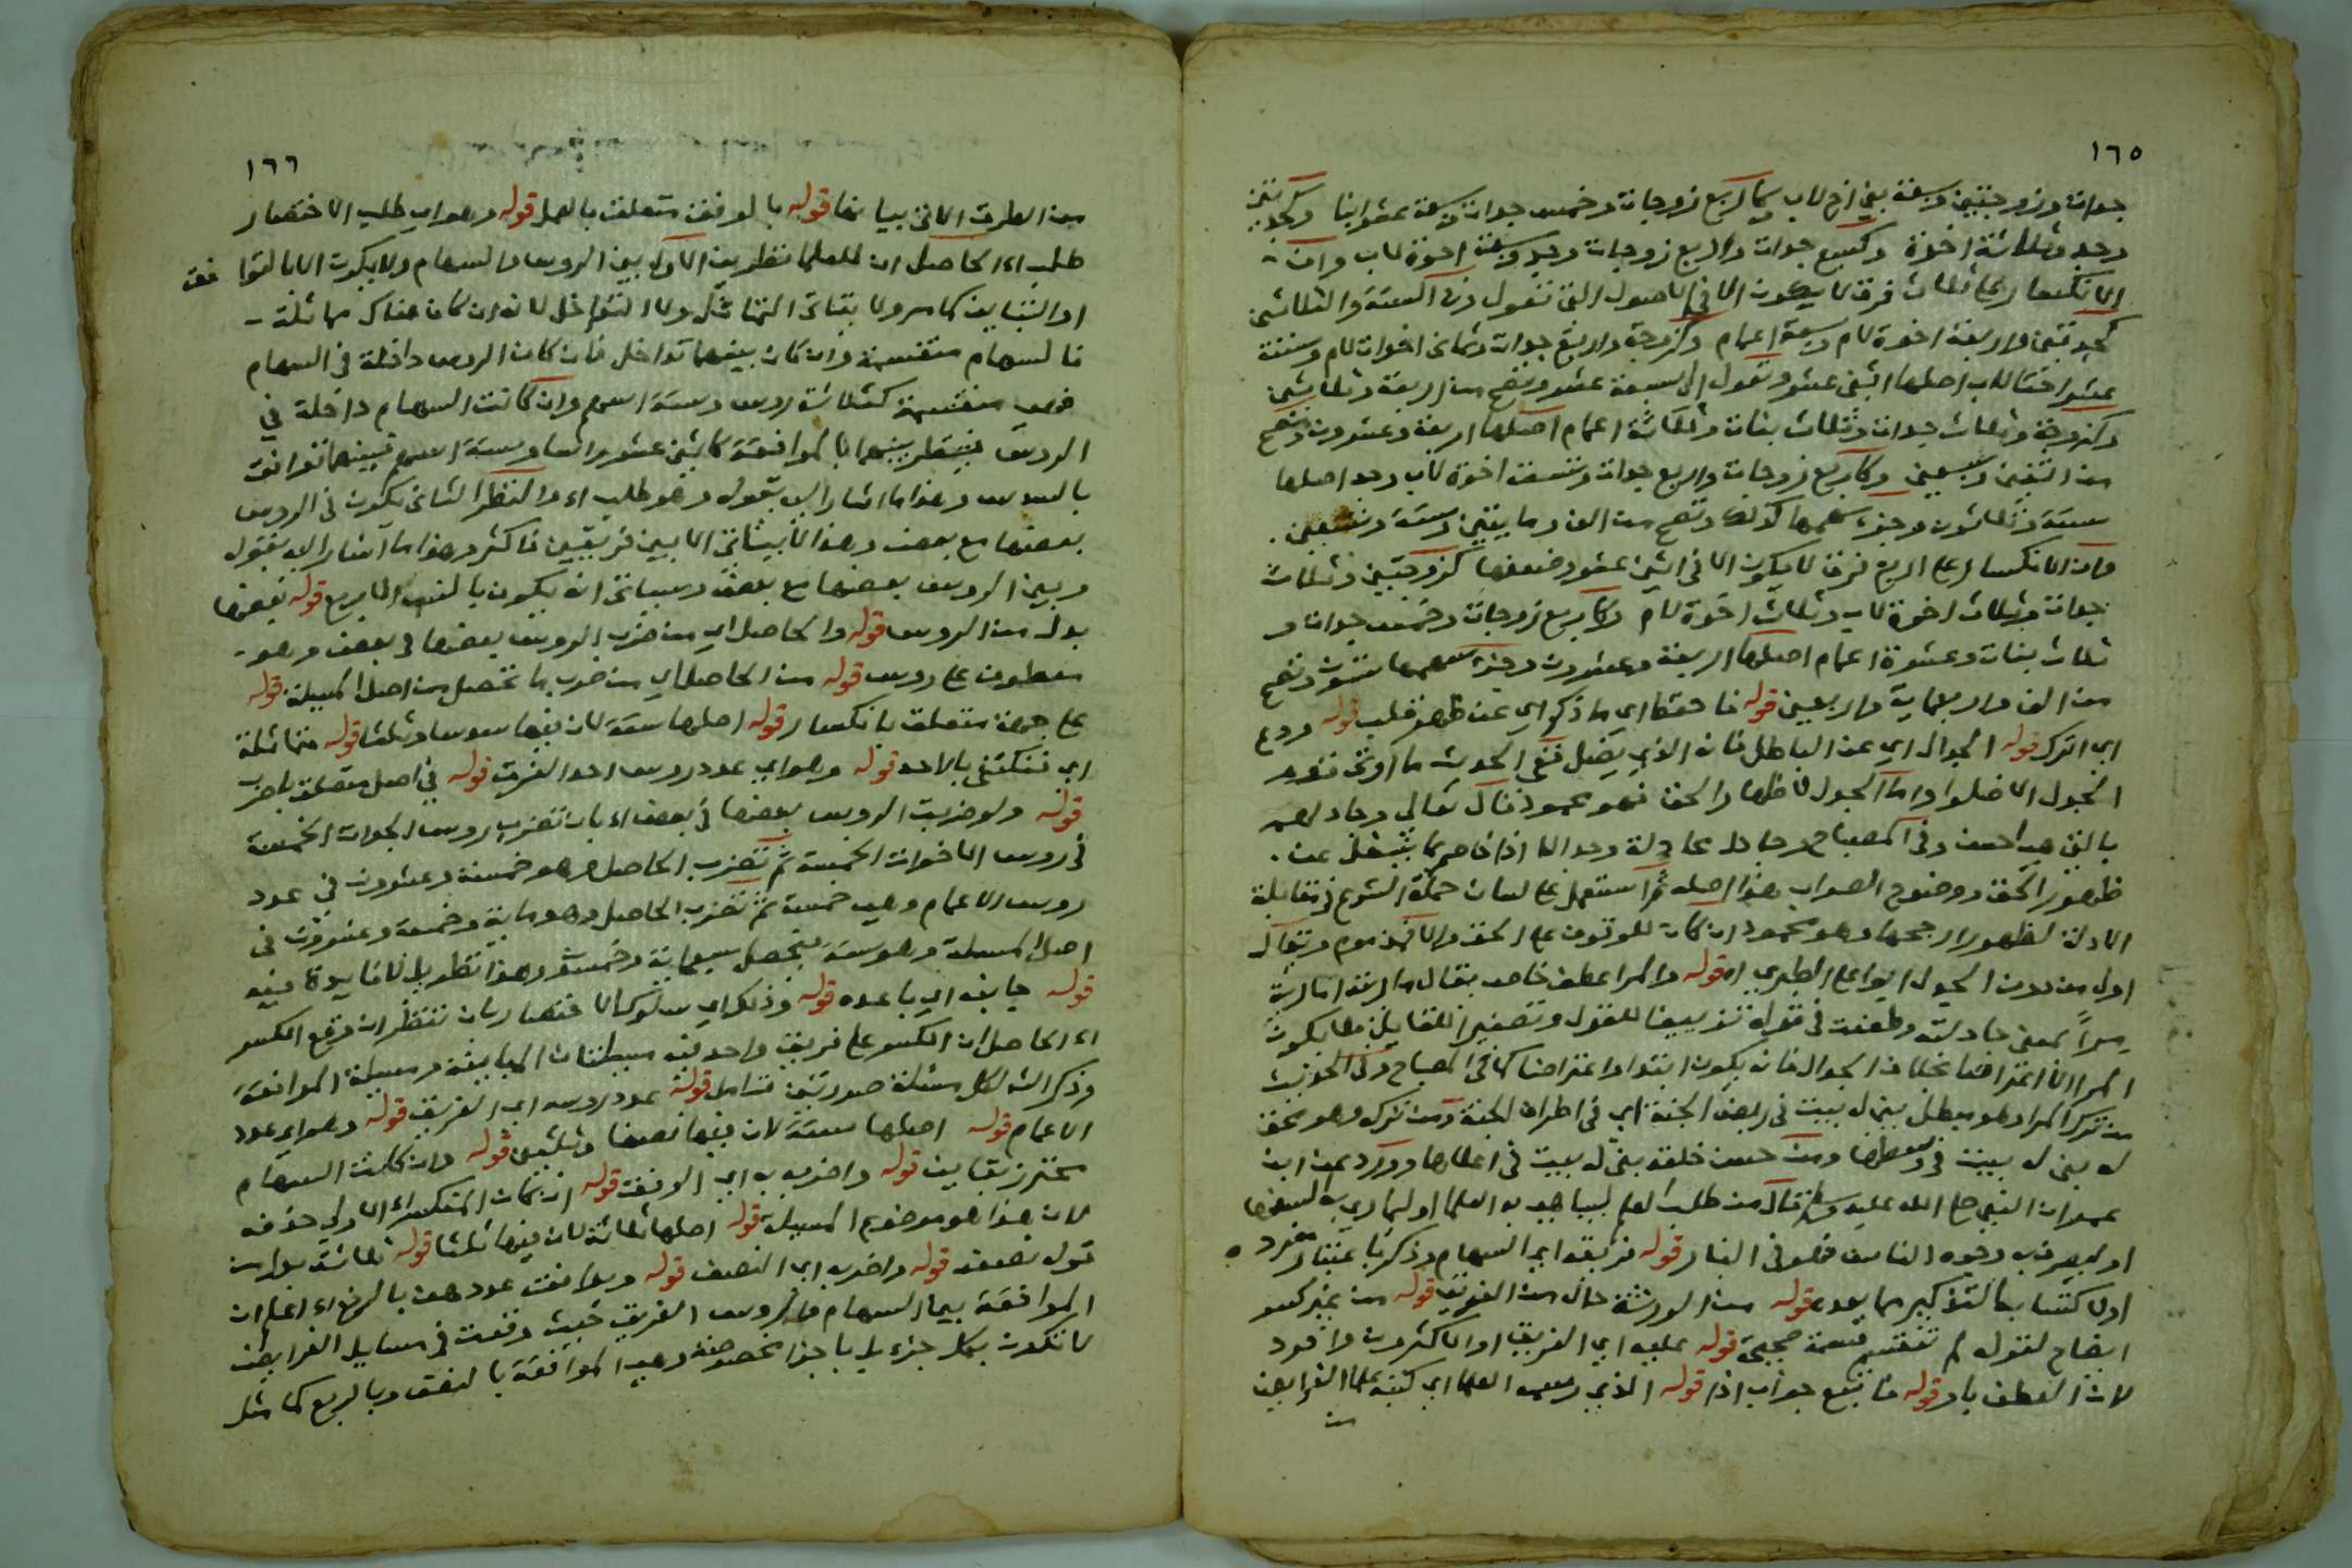 ١٦٥
جدات وزوجتين وسبعة بني اخ لاب وكاربع زوجات وخمس جدات وسبعة عشر ابنا وكجدتين
وجد وثلاثة اخوة وكسبع جدات واربع زوجات وجد وسبعة اخوة لاب وان
الانكسار على ثلاث فرق لا يكون الا في الاصول التي تعول وفي الستة والثلاثين
كجدتين واربعة اخوة لام وسبعة اعمام وكزوجة واربع جدات وثماني اخوات لام وستة
عشر اختا لاب اصلها اثني عشر وتعول الى سبعة عشر وتصح من اربعة وثلاثين
وكزوجة وثلاث جدات وثلاث بنات وثلاثة اعمام اصلها اربعة وعشرون وتصح
من اثنين وسبعين وكاربع زوجات واربع جدات وتسعة اخوة لاب وجد اصلها
ستة وثلاثون وجزء سهمها كذلك وتصح من الف ومايتين وستة وتسعين
وان الانكسار على اربع فرق لا يكون الا في اثني عشر وضعفها كزوجتين وثلاث
جدات وثلاث اخوة لاب وثلاث اخوة لام وكاربع زوجات وخمس جدات و
ثلاث بنات وعشرة اعمام اصلها اربعة وعشرون وجزء سهمها ستون وتصح
من الف واربعماية واربعين قوله فاحفظ اي ما ذكر اي عن ظهر قلب قوله ودع
اي اترك قوله الجدال اي عن الباطل فانه الذي يضل ففي الحديث ما اوتي قوم
الجدل الا ضلوا واما الجدل لاظهار الحق فهو محمود قال تعالى وجادلهم
بالتي هي احسن وفي المصباح وجادل مجادلة وجدالا اذا خاصم بما يشغل عن
ظهور الحق ووضوح الصواب هذا اصله ثم استعمل على لسان حملة الشرع في مقابلة
الادلة لظهور ارجحها وهو محمود ان كان للوقوف على الحق والا فمذموم ويقال
اول من دون الجدل ابو علي الطبري اه قوله والمرا عطف خاص يقال ماريته اماريه
مراً بمعنى جادلته وطعنت في قوله تزييفا للقول وتصغيرا للقايل ولا يكون
المرا الا اعتراضا بخلاف الجدال فانه يكون ابتدا واعتراضا كما في المصباح وفي الحديث
من ترك المرا وهو مبطل بني له بيت في ربض الجنة اي في اطراف الجنة ومن تركه وهو محق
له بني له بيت في وسطها ومن حسن خلقه بني له بيت في اعلاها وورد عن ابن
عمر ان النبي صلى الله عليه وسلم قال من طلب العلم ليباهي به العلما او ليماري به السفها
او ليصرف به وجوه الناس فهو في النار قوله فريقه اي السهام وذكر باعتبار مفرد ه
او لاكتسابه التذكير مما بعده قوله من الورثة حال من الفريق قوله من غير كسر
ايضاح لقوله لم تنقسم قسمة صحيحة قوله عليه اي الفريق او الاكثرون وافرد
لان العطف باو قوله فاتبع جواب اذا قوله الذي رسمه العلما اي كتبه علما الفرايض
من
١٦٦
من الطرق الاتي بيانها قوله بالوفق متعلق بالعمل قوله وهو اي طلب الاختصار
طلب اه الحاصل ان للعلما نظرين الاول بين الروس والسهام ولا يكون الا بالتوافق
او التباين كما مر ولا يتاتى التماثل ولا التداخل لانه ان كان هناك مماثلة
فالسهام منقسمة وان كان بينهما تداخل فان كان الروس داخلة في السهام
فهي منقسمة كثلاثة روس وستة اسهم وان كانت السهام داخلة في
الروس فينظر بينهما بالموافقة كاثني عشر راسا وستة اسهم فبينهما توافق
بالسدس وهذا ما اشار اليه بقوله وهو طلب اه والنظر الثاني يكون في الروس
بعضها مع بعض وهذا لا يتاتى الا بين فريقين فاكثر وهذا ما اشار اليه بقوله
وبين الروس بعضها مع بعض وسياتي انه يكون بالنسب الاربع قوله بعضها
بدل من الروس قوله والحاصل اي من ضرب الروس بعضها في بعض وهو
معطوف على روس قوله من الحاصل اي من ضرب ما تحصل من اصل المسئلة قوله
على جهة متعلق بانكسار قوله اصلها ستة لان فيها سدسا وثلثا قوله متماثلة
اي فنكتفي بالاحد قوله وهو اي عدد روس احد الفرق قوله في اصل متعلق باضرب
قوله ولو ضربت الروس بعضها في بعض اه بان تضرب روس الجدات الخمسة
في روس الاخوات الخمسة ثم تضرب الحاصل وهو خمسة وعشرون في عدد
روس الاعمام وهي خمسة ثم تضرب الحاصل وهو ماية وخمسة وعشرون في
اصل المسئلة وهو ستة يتحصل سبعماية وخمسون وهذا تطويل لا فايدة فيه
قوله جانبه اي باعده قوله وذلك اي سلوك الاختصار بان تنظر ان وقع الكسر
اه الحاصل ان الكسر على فريق واحد فيه مسئلتان المباينة ومسئلة الموافقة
وذكر الش لكل مسئلة صورتين فتامل قوله عدد روسه اي الفريق قوله وهو اي عدد
الاعمام قوله اصلها ستة لان فيها نصفا وثلثين قوله وان كانت السهام
محترز تباين قوله واضرب به اي الوفق قوله ان كان المنكسر اه الاولى حذفه
لان هذا هو موضوع المسئلة قوله اصلها ثلاثة لان فيها ثلثا قوله ثلاثة بدل من
قوله نصفه قوله واضربه اي النصف قوله وبوافقت عددهن بالربع اه اعلم ان
الموافقة بين السهام والروس الفريق حيث وقعت في مسايل الفرايض
لا تكون بكل جزء بل باجزا مخصوصة وهي الموافقة بالنصف وبالربع كما مثل